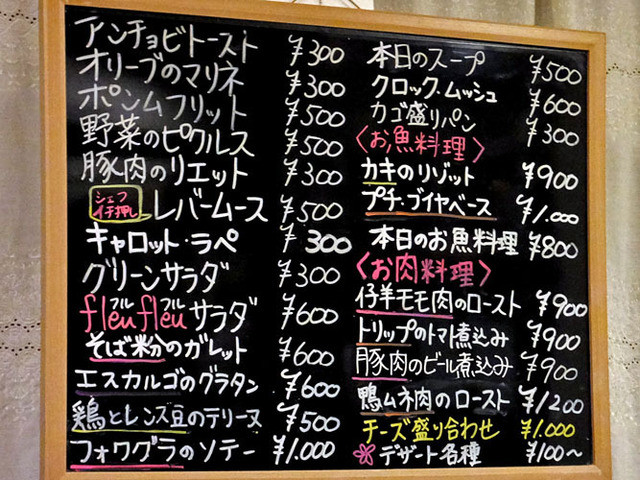 アンチョビトースト ¥300
オリーブのマリネ ¥300
ポンムフリット ¥500
野菜のピクルス ¥500
豚肉のリエット ¥300
シェフイチ押し レバームース ¥500
キャロット・ラペ ¥300
グリーンサラダ ¥300
fleu fleu フル フル サラダ ¥600
そば粉のガレット ¥600
エスカルゴのグラタン ¥600
鶏とレンズ豆のテリーヌ ¥500
フォワグラのソテー ¥1.000
本日のスープ ¥500
クロック・ムッシュ ¥600
カゴ盛りパン ¥300
〈お魚料理〉
カキのリゾット ¥900
プチ・ブイヤベース ¥1.000
本日のお魚料理 ¥800
〈お肉料理〉
仔羊モモ肉のロースト ¥900
トリップのトマト煮込み ¥900
豚肉のビール煮込み ¥900
鴨ムネ肉のロースト ¥1200
チーズ盛り合わせ ¥1.000
デザート各種 ¥100〜